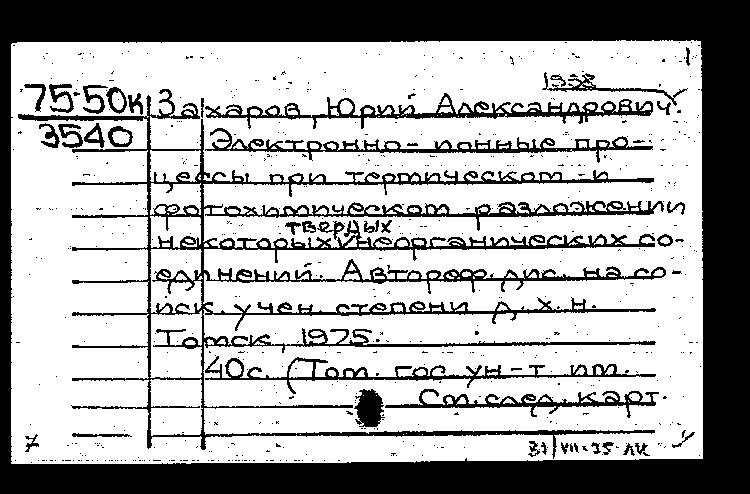 1938
75-50к Захаров, Юрий Александрович.
3540 Электронно-ионные про-
цессы при термическом и
фотохимическом разложении
твердых
некоторых неорганических со-
единений. Автореф. дис. на со-
иск. учен. степени д. х. н.
Томск, 1975.
40с. (Том. гос. ун-т им.
См. след. карт.